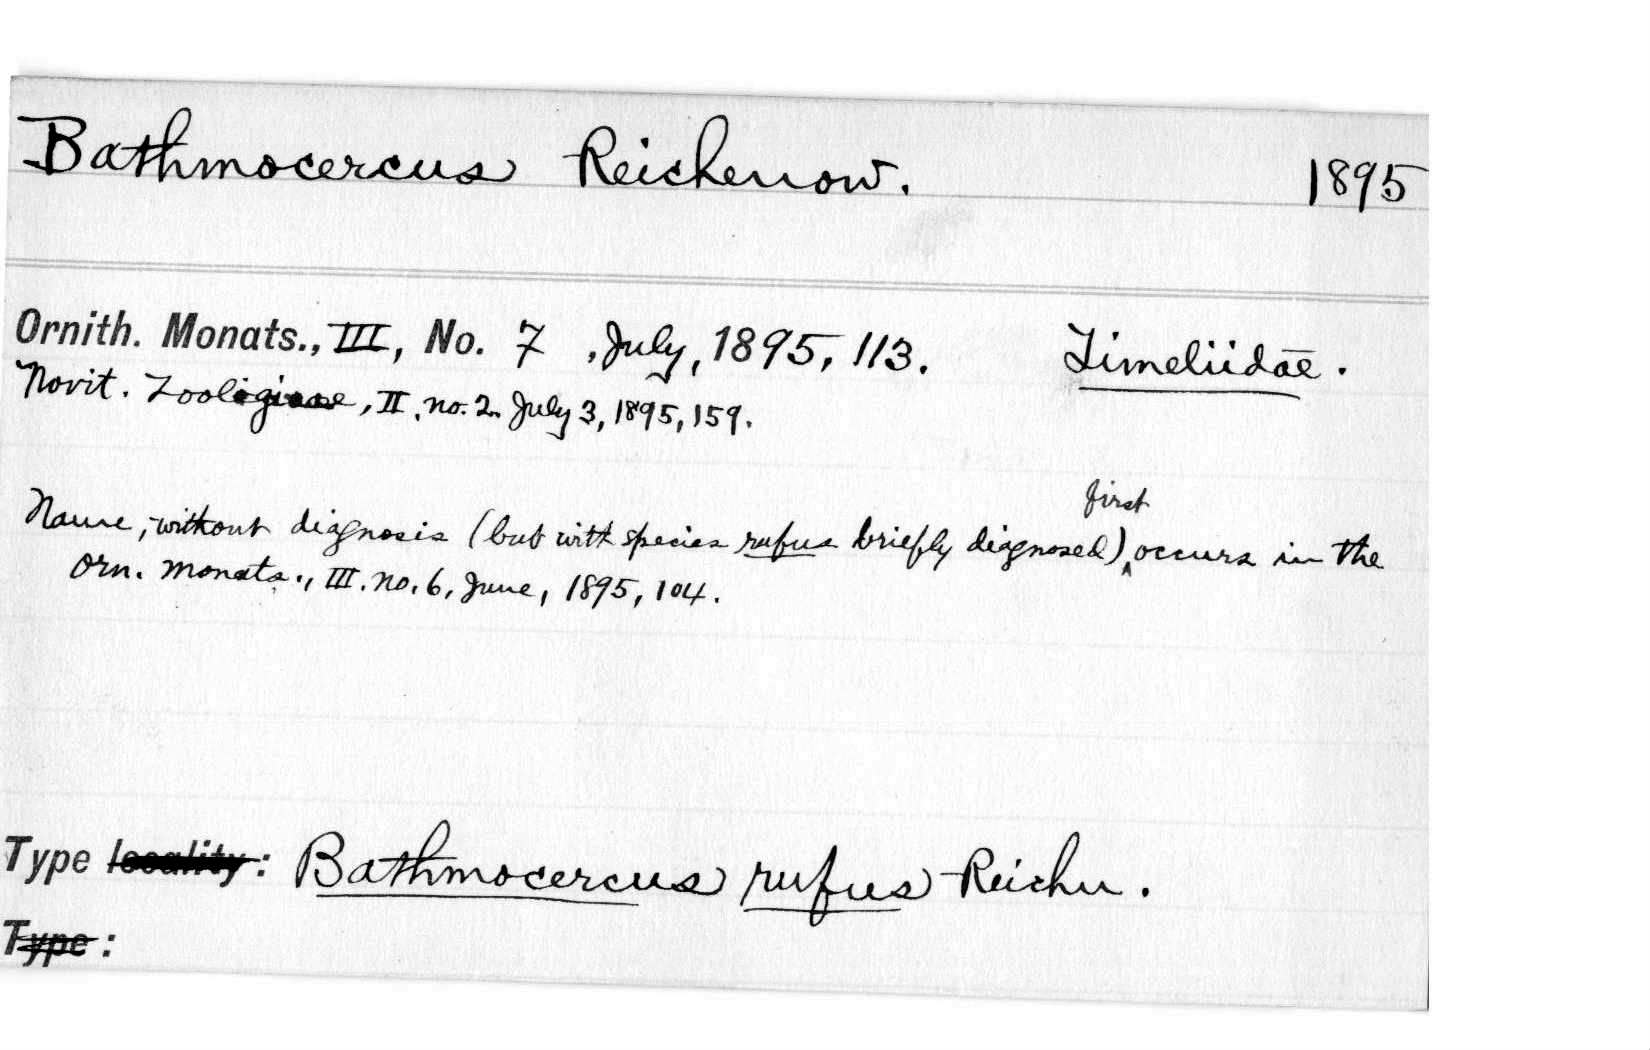 Bathmocercus Reichenow. 1895
Ornith. Monats., III, No. 7, July, 1895, 113. Timeliidae.
Novit. Zoologicae, II, no. 2. July 3, 1895, 159.
first
Name, without diagnosis (but with species rufus briefly diagnosed)‸ occurs in the
Orn. Monats., III. no. 6, June, 1895, 104.
Type locality: Bathmocercus rufus Reichn.
Type: